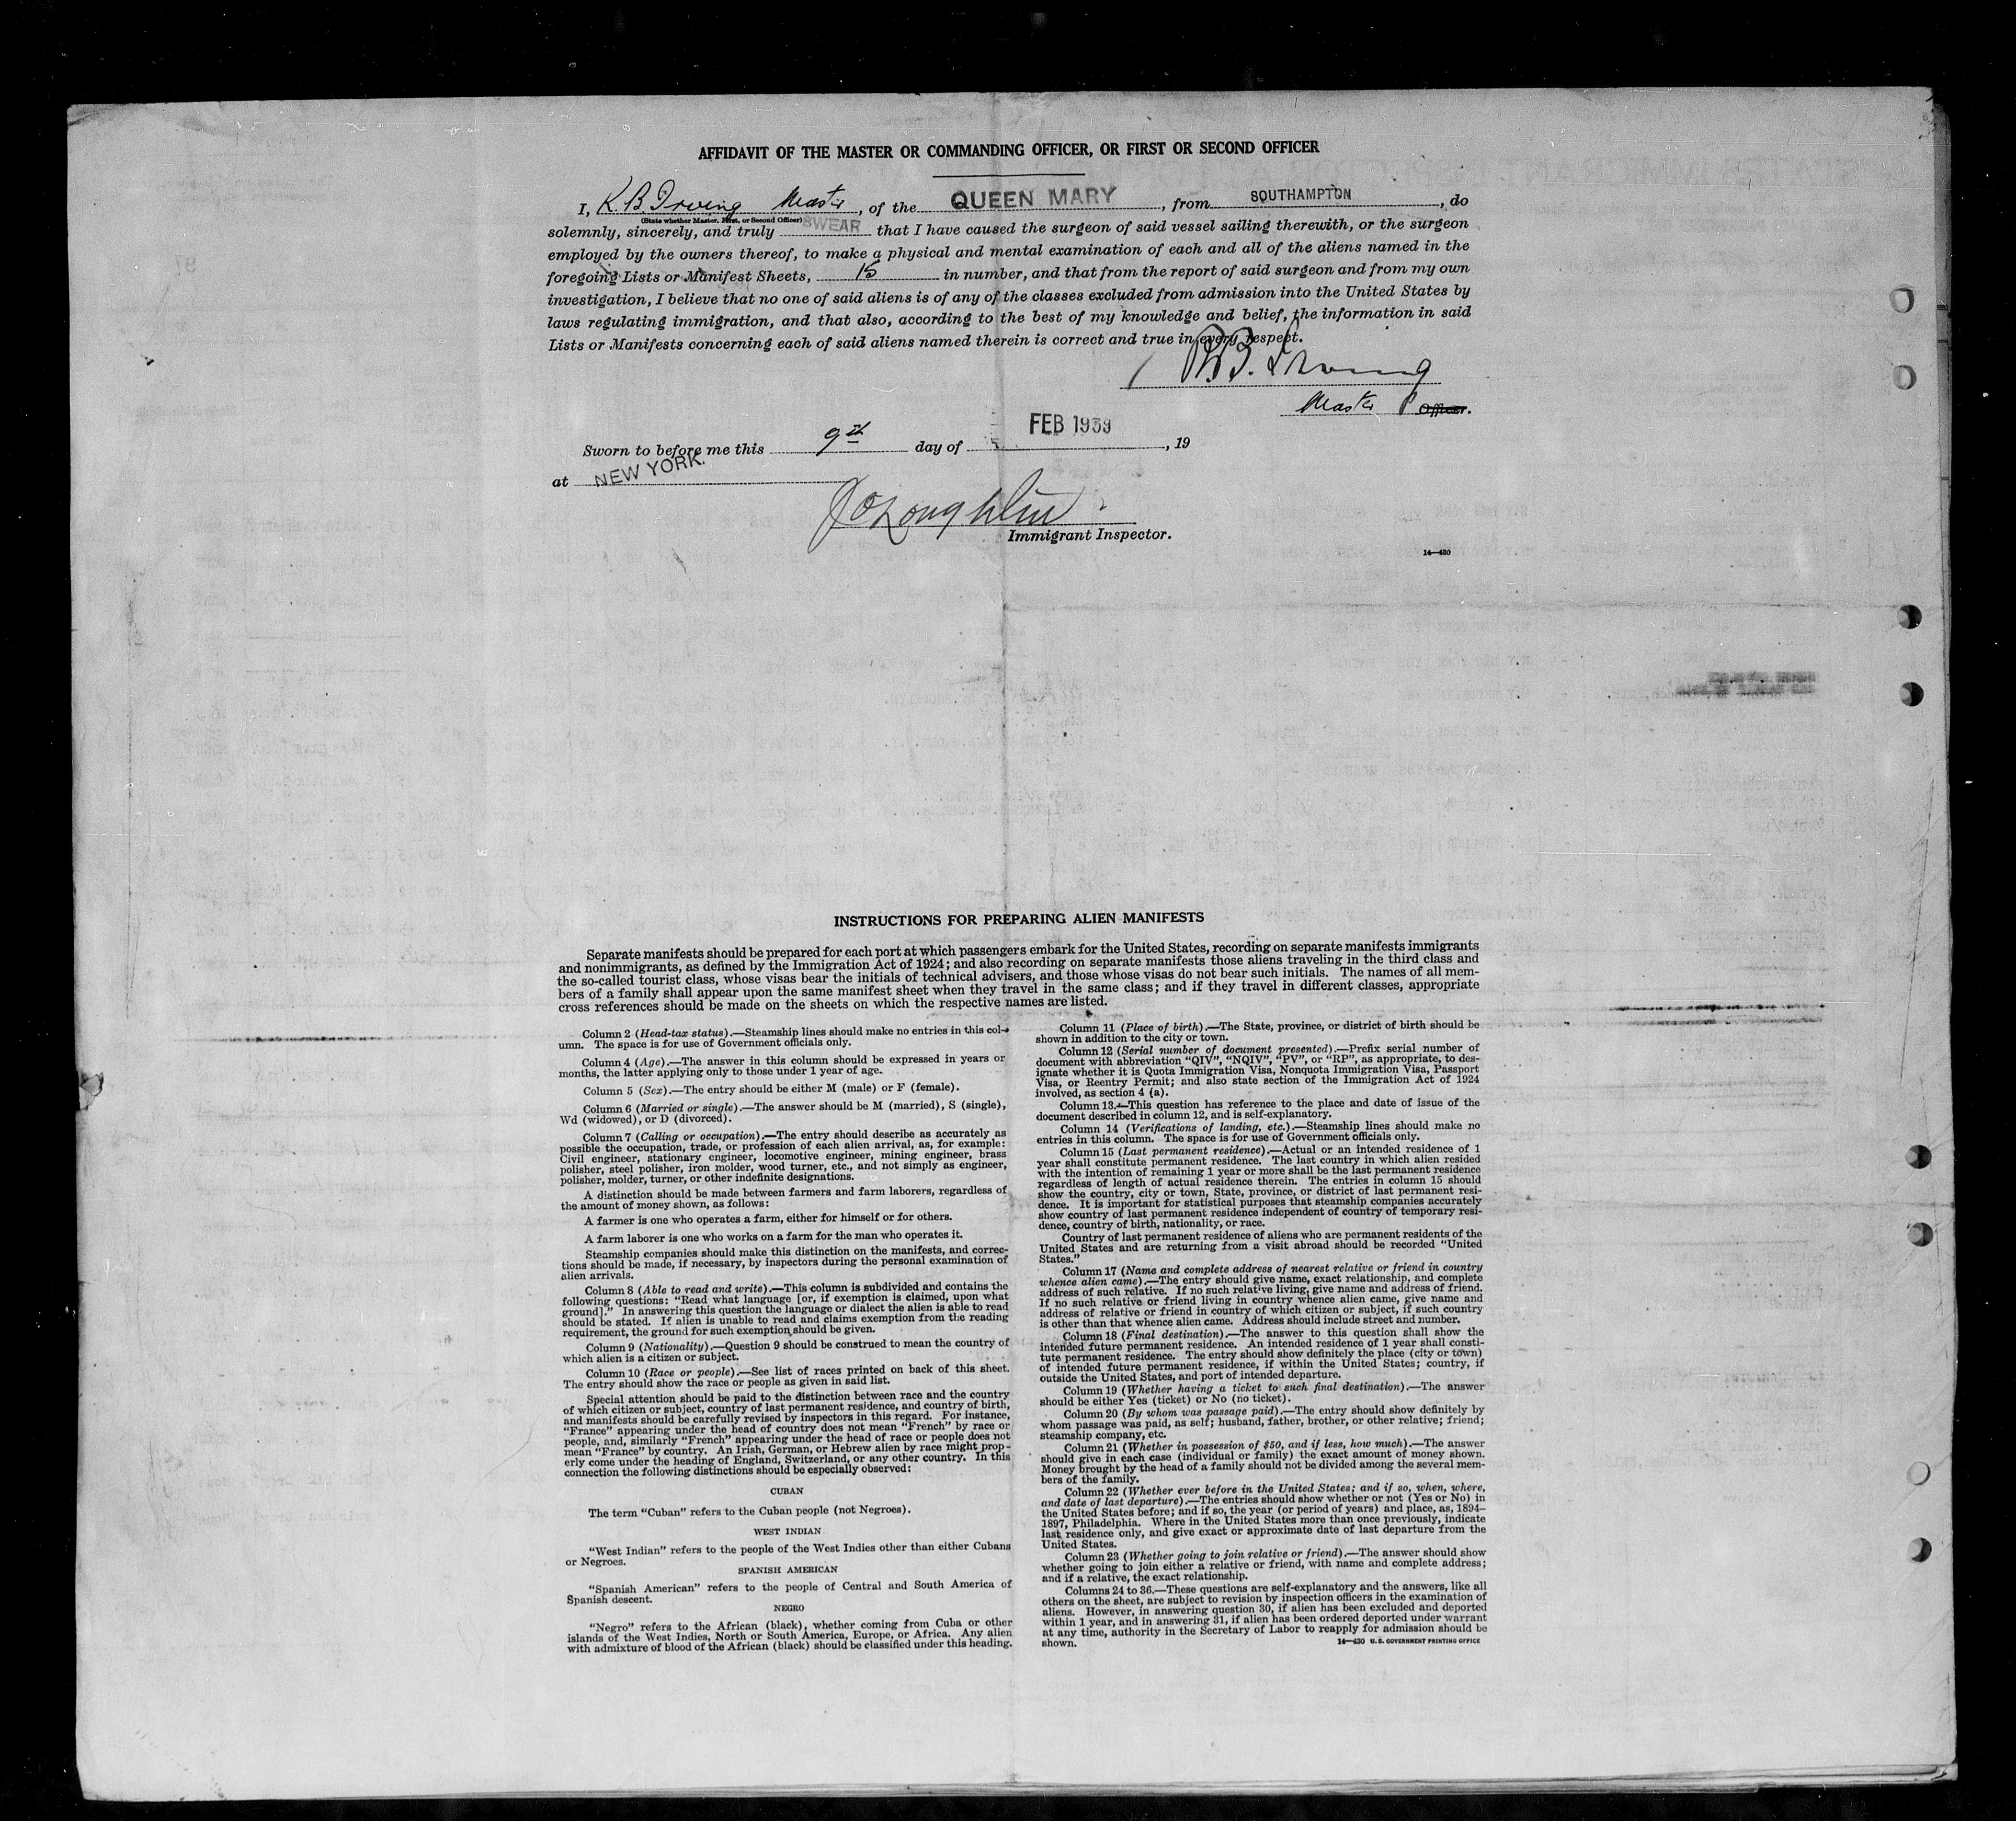 AFFIDAVIT OF THE MASTER OR COMMANDING OFFICER, OR FIRST OR SECOND OFFICER
I, K B Irving Master, of the QUEEN MARY, from SOUTHAMPTON, do
(State whether Master, First, or Second Officer)
solemnly, sincerely, and truly SWEAR that I have caused the surgeon of said vessel sailing therewith, or the surgeon
employed by the owners thereof, to make a physical and mental examination of each and all of the aliens named in the
foregoing Lists or Manifest Sheets, 15 in number, and that from the report of said surgeon and from my own
investigation, I believe that no one of said aliens is of any of the classes excluded from admission into the United States by
laws regulating immigration, and that also, according to the best of my knowledge and belief, the information in said
Lists or Manifests concerning each of said aliens named therein is correct and true in every respect.
B. Irving
Master Officer.
Sworn to before me this 9th day of FEB 1939, 19
at NEW YORK.
Immigrant Inspector.
14—430
INSTRUCTIONS FOR PREPARING ALIEN MANIFESTS
Separate manifests should be prepared for each port at which passengers embark for the United States, recording on separate manifests immigrants
and nonimmigrants, as defined by the Immigration Act of 1924; and also recording on separate manifests those aliens traveling in the third class and
the so-called tourist class, whose visas bear the initials of technical advisers, and those whose visas do not bear such initials. The names of all mem-
bers of a family shall appear upon the same manifest sheet when they travel in the same class; and if they travel in different classes, appropriate
cross references should be made on the sheets on which the respective names are listed.
Column 2 (Head-tax status).—Steamship lines should make no entries in this col-
umn. The space is for use of Government officials only.
Column 4 (Age).—The answer in this column should be expressed in years or
months, the latter applying only to those under 1 year of age.
Column 5 (Sex).—The entry should be either M (male) or F (female).
Column 6 (Married or single).—The answer should be M (married), S (single),
Wd (widowed), or D (divorced).
Column 7 (Calling or occupation).—The entry should describe as accurately as
possible the occupation, trade, or profession of each alien arrival, as, for example:
Civil engineer, stationary engineer, locomotive engineer, mining engineer, brass
polisher, steel polisher, iron molder, wood turner, etc., and not simply as engineer,
polisher, molder, turner, or other indefinite designations.
A distinction should be made between farmers and farm laborers, regardless of
the amount of money shown, as follows:
A farmer is one who operates a farm, either for himself or for others.
A farm laborer is one who works on a farm for the man who operates it.
Steamship companies should make this distinction on the manifests, and correc-
tions should be made, if necessary, by inspectors during the personal examination of
alien arrivals.
Column 8 (Able to read and write).—This column is subdivided and contains the
following questions: "Read what language [or, if exemption is claimed, upon what
ground]." In answering this question the language or dialect the alien is able to read
should be stated. If alien is unable to read and claims exemption from the reading
requirement, the ground for such exemption should be given.
Column 9 (Nationality).—Question 9 should be construed to mean the country of
which alien is a citizen or subject.
Column 10 (Race or people).—See list of races printed on back of this sheet.
The entry should show the race or people as given in said list.
Special attention should be paid to the distinction between race and the country
of which citizen or subject, country of last permanent residence, and country of birth,
and manifests should be carefully revised by inspectors in this regard. For instance,
"France" appearing under the head of country does not mean "French" by race or
people, and, similarly "French" appearing under the head of race or people does not
mean "France" by country. An Irish, German, or Hebrew alien by race might prop-
erly come under the heading of England, Switzerland, or any other country. In this
connection the following distinctions should be especially observed:
CUBAN
The term "Cuban" refers to the Cuban people (not Negroes).
WEST INDIAN
"West Indian" refers to the people of the West Indies other than either Cubans
or Negroes.
SPANISH AMERICAN
"Spanish American" refers to the people of Central and South America of
Spanish descent.
NEGRO
"Negro" refers to the African (black), whether coming from Cuba or other
islands of the West Indies, North or South America, Europe, or Africa. Any alien
with admixture of blood of the African (black) should be classified under this heading.
Column 11 (Place of birth).—The State, province, or district of birth should be
shown in addition to the city or town.
Column 12 (Serial number of document presented).—Prefix serial number of
document with abbreviation "QIV", "NQIV", "PV", or "RP", as appropriate, to des-
ignate whether it is Quota Immigration Visa, Nonquota Immigration Visa, Passport
Visa, or Reentry Permit; and also state section of the Immigration Act of 1924
involved, as section 4 (a).
Column 13.—This question has reference to the place and date of issue of the
document described in column 12, and is self-explanatory.
Column 14 (Verifications of landing, etc.).—Steamship lines should make no
entries in this column. The space is for use of Government officials only.
Column 15 (Last permanent residence).—Actual or an intended residence of 1
year shall constitute permanent residence. The last country in which alien resided
with the intention of remaining 1 year or more shall be the last permanent residence
regardless of length of actual residence therein. The entries in column 15 should
show the country, city or town, State, province, or district of last permanent resi-
dence. It is important for statistical purposes that steamship companies accurately
show country of last permanent residence independent of country of temporary resi-
dence, country of birth, nationality, or race.
Country of last permanent residence of aliens who are permanent residents of the
United States and are returning from a visit abroad should be recorded "United
States."
Column 17 (Name and complete address of nearest relative or friend in country
whence alien came).—The entry should give name, exact relationship, and complete
address of such relative. If no such relative living, give name and address of friend.
If no such relative or friend living in country whence alien came, give name and
address of relative or friend in country of which citizen or subject, if such country
is other than that whence alien came. Address should include street and number.
Column 18 (Final destination).—The answer to this question shall show the
intended future permanent residence. An intended residence of 1 year shall consti-
tute permanent residence. The entry should show definitely the place (city or town)
of intended future permanent residence, if within the United States; country, if
outside the United States, and port of intended departure.
Column 19 (Whether having a ticket to such final destination).—The answer
should be either Yes (ticket) or No (no ticket).
Column 20 (By whom was passage paid).—The entry should show definitely by
whom passage was paid, as self; husband, father, brother, or other relative; friend;
steamship company, etc.
Column 21 (Whether in possession of $50, and if less, how much).—The answer
should give in each case (individual or family) the exact amount of money shown.
Money brought by the head of a family should not be divided among the several mem-
bers of the family.
Column 22 (Whether ever before in the United States; and if so, when, where,
and date of last departure).—The entries should show whether or not (Yes or No) in
the United States before; and if so, the year (or period of years) and place, as, 1894–
1897, Philadelphia. Where in the United States more than once previously, indicate
last residence only, and give exact or approximate date of last departure from the
United States.
Column 23 (Whether going to join relative or friend).—The answer should show
whether going to join either a relative or friend, with name and complete address;
and if a relative, the exact relationship.
Columns 24 to 36.—These questions are self-explanatory and the answers, like all
others on the sheet, are subject to revision by inspection officers in the examination of
aliens. However, in answering question 30, if alien has been excluded and deported
within 1 year, and in answering 31, if alien has been ordered deported under warrant
at any time, authority in the Secretary of Labor to reapply for admission should be
shown.
14—430 U. S. GOVERNMENT PRINTING OFFICE